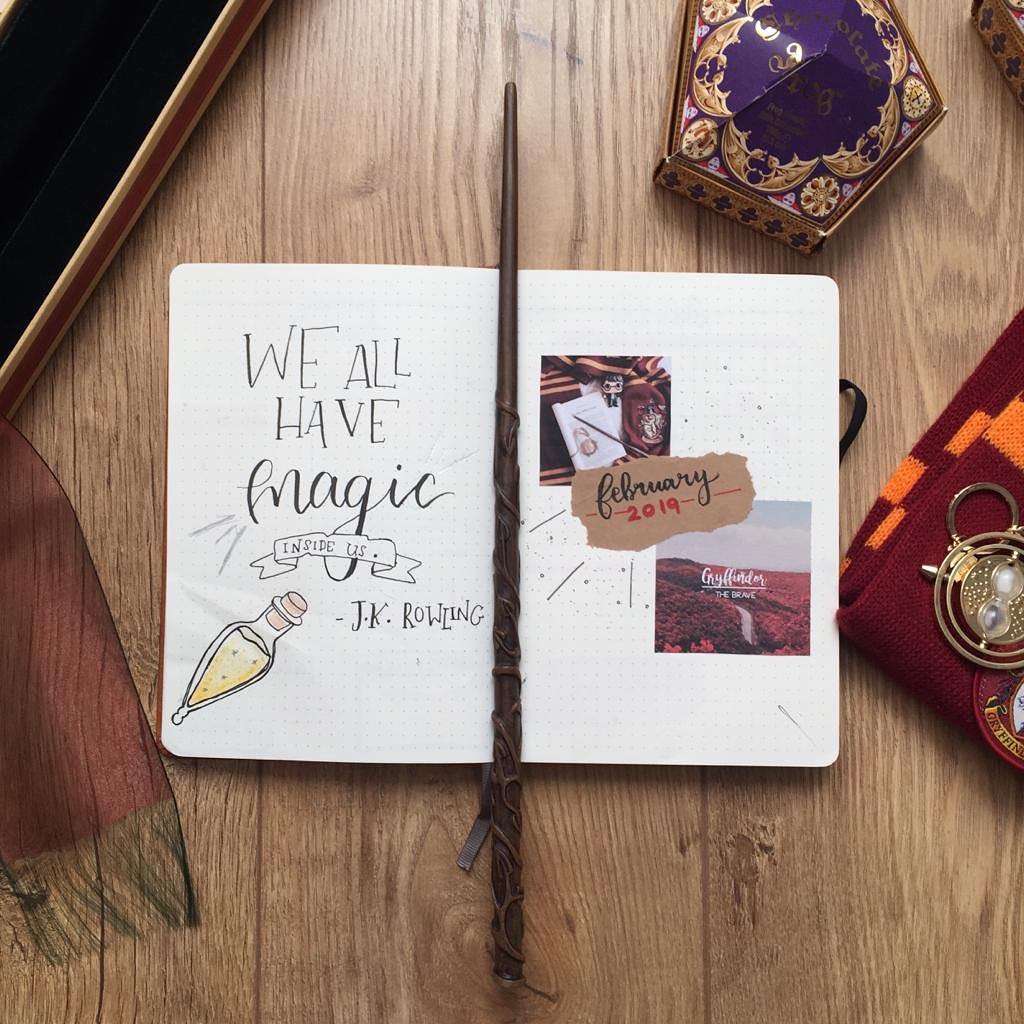 Chocolate
Frog
WE ALL
HAVE
magic
INSIDE US.
- J.K. ROWLING
february
2019
Gryffindor
THE BRAVE